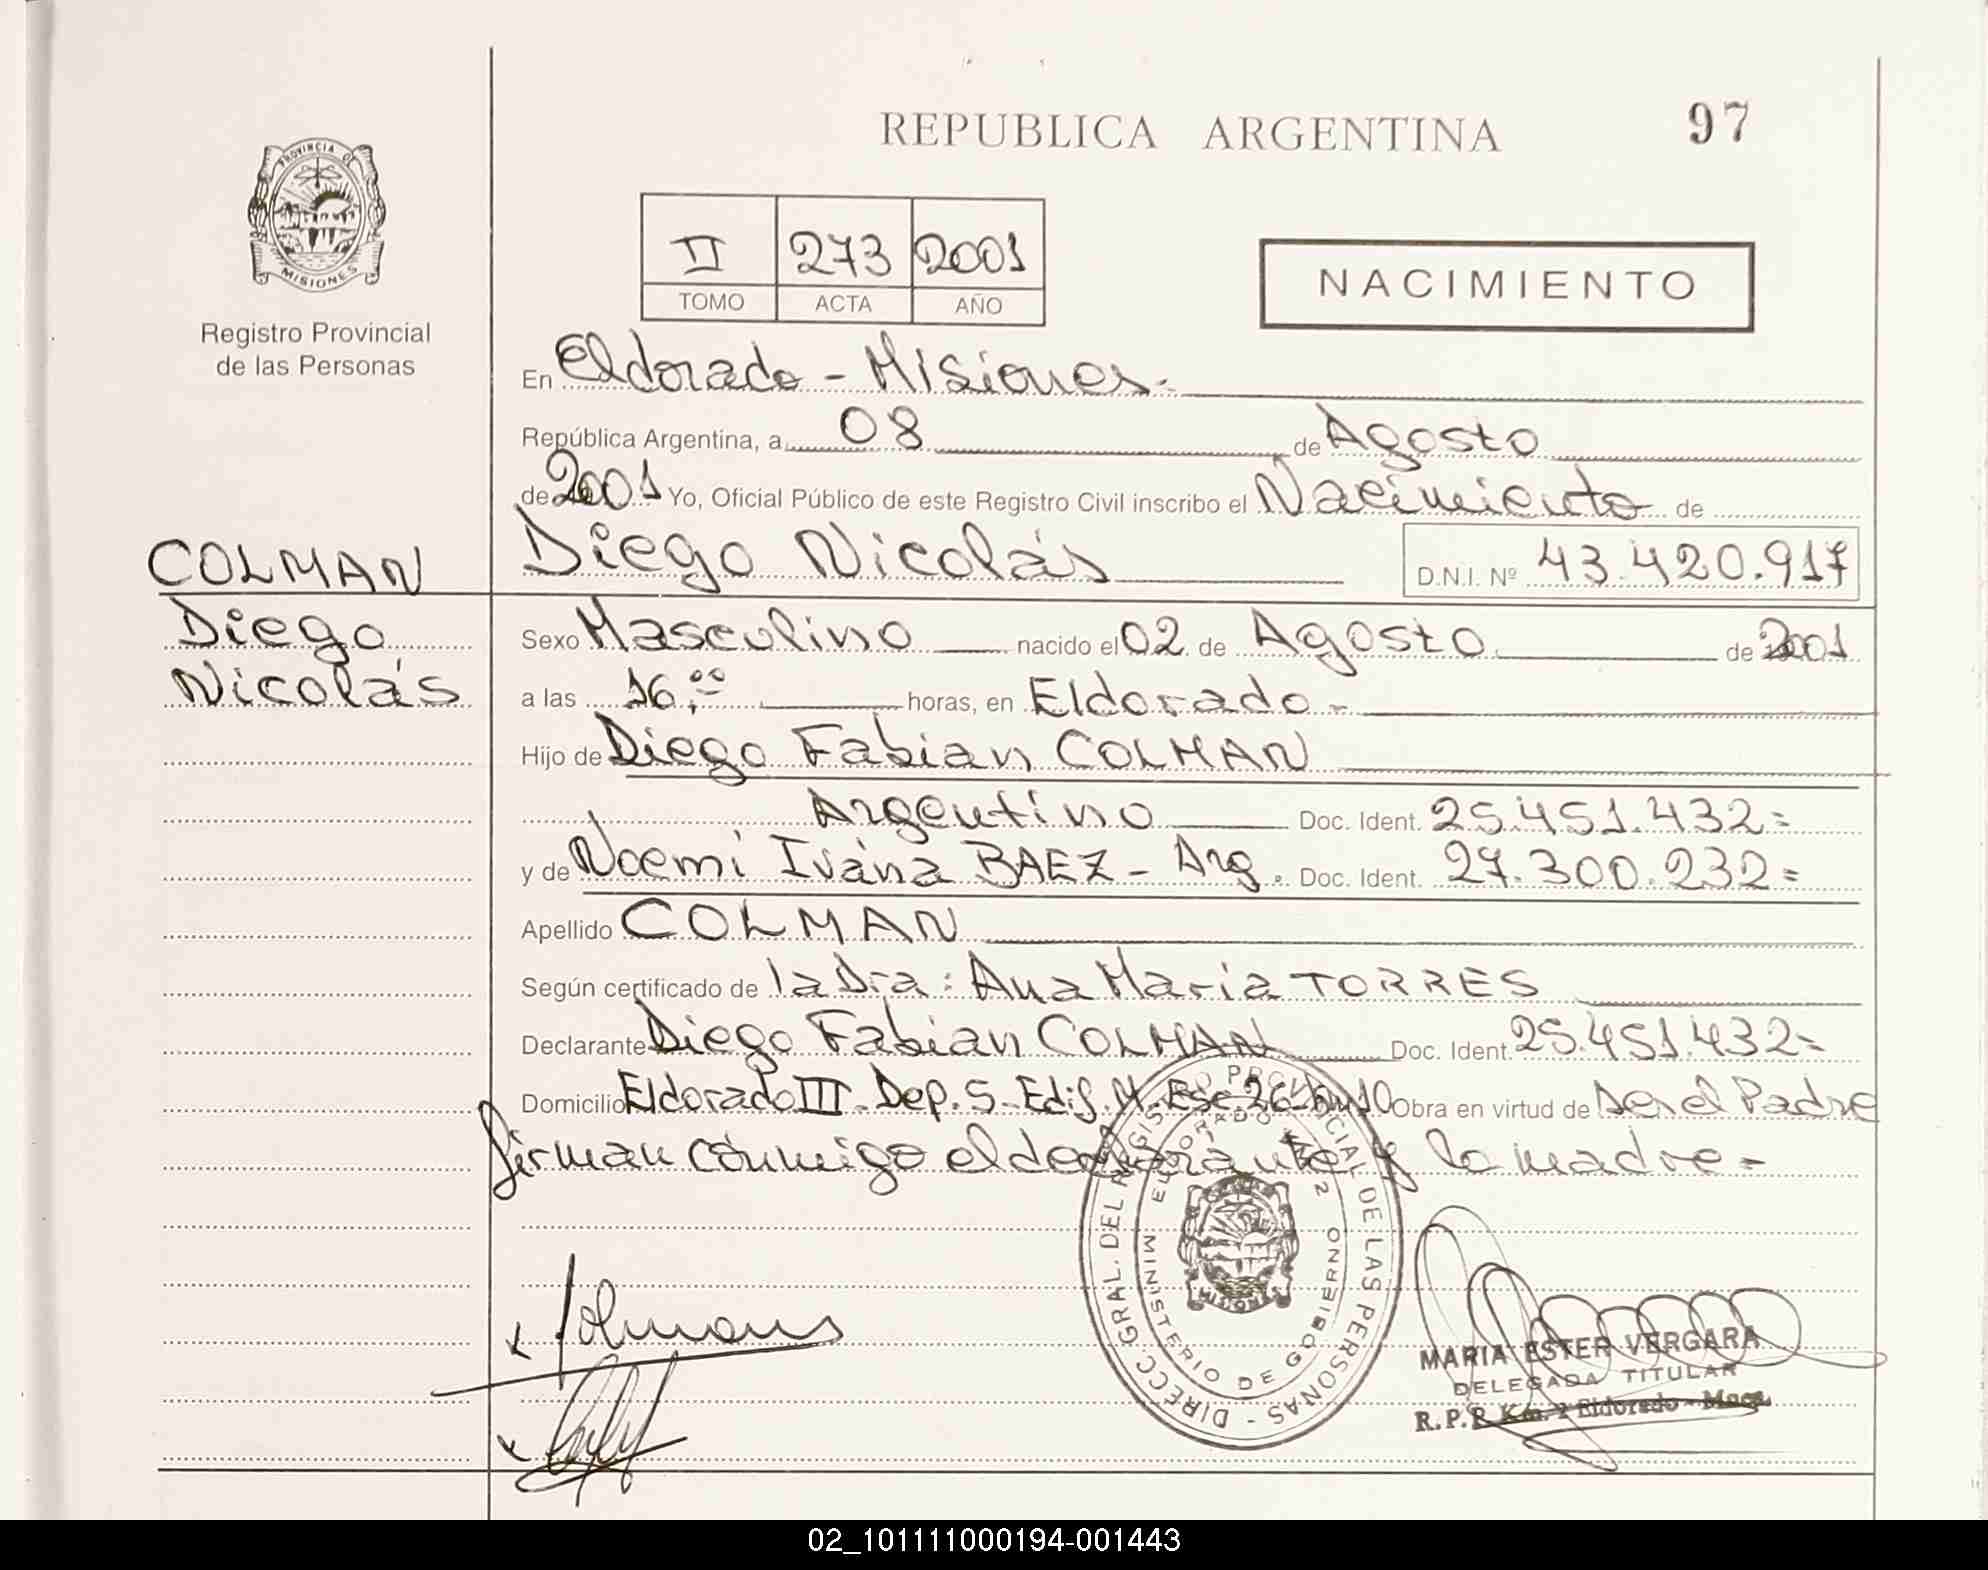 REPUBLICA ARGENTINA
97
PROVINCIA DE
MISIONES
Registro Provincial
de las Personas
II 273 2001
TOMO ACTA AÑO
NACIMIENTO
En Eldorado - Misiones.
República Argentina, a 08 de Agosto
de 2001 Yo, Oficial Público de este Registro Civil inscribo el Nacimiento de
Diego Nicolás D.N.I. Nº 43.420.917
COLMAN
Diego
Nicolás
Sexo Masculino nacido el 02 de Agosto de 2001
a las 16:00 horas, en Eldorado-
Hijo de Diego Fabian COLMAN
Argentino Doc. Ident. 25.451.432=
y de Noemi Ivana BAEZ - Arg. Doc. Ident. 27.300.232=
Apellido COLMAN
Según certificado de la Dra: Ana Maria TORRES
Declarante Diego Fabian COLMAN Doc. Ident. 25.451.432=
Domicilio Eldorado III. Dep. 5. Edif. M. Esc. 26 Km 10 Obra en virtud de ser el Padre
firman conmigo el declarante y la madre-
DIRECC. GRAL. DEL REGISTRO PROVINCIAL DE LAS PERSONAS -
ELDORADO KM 2
MINISTERIO DE GOBIERNO
MISIONES
MARIA ESTER VERGARA
DELEGADA TITULAR
R.P.P. Km. 2 Eldorado - Mnes.
02_101111000194-001443